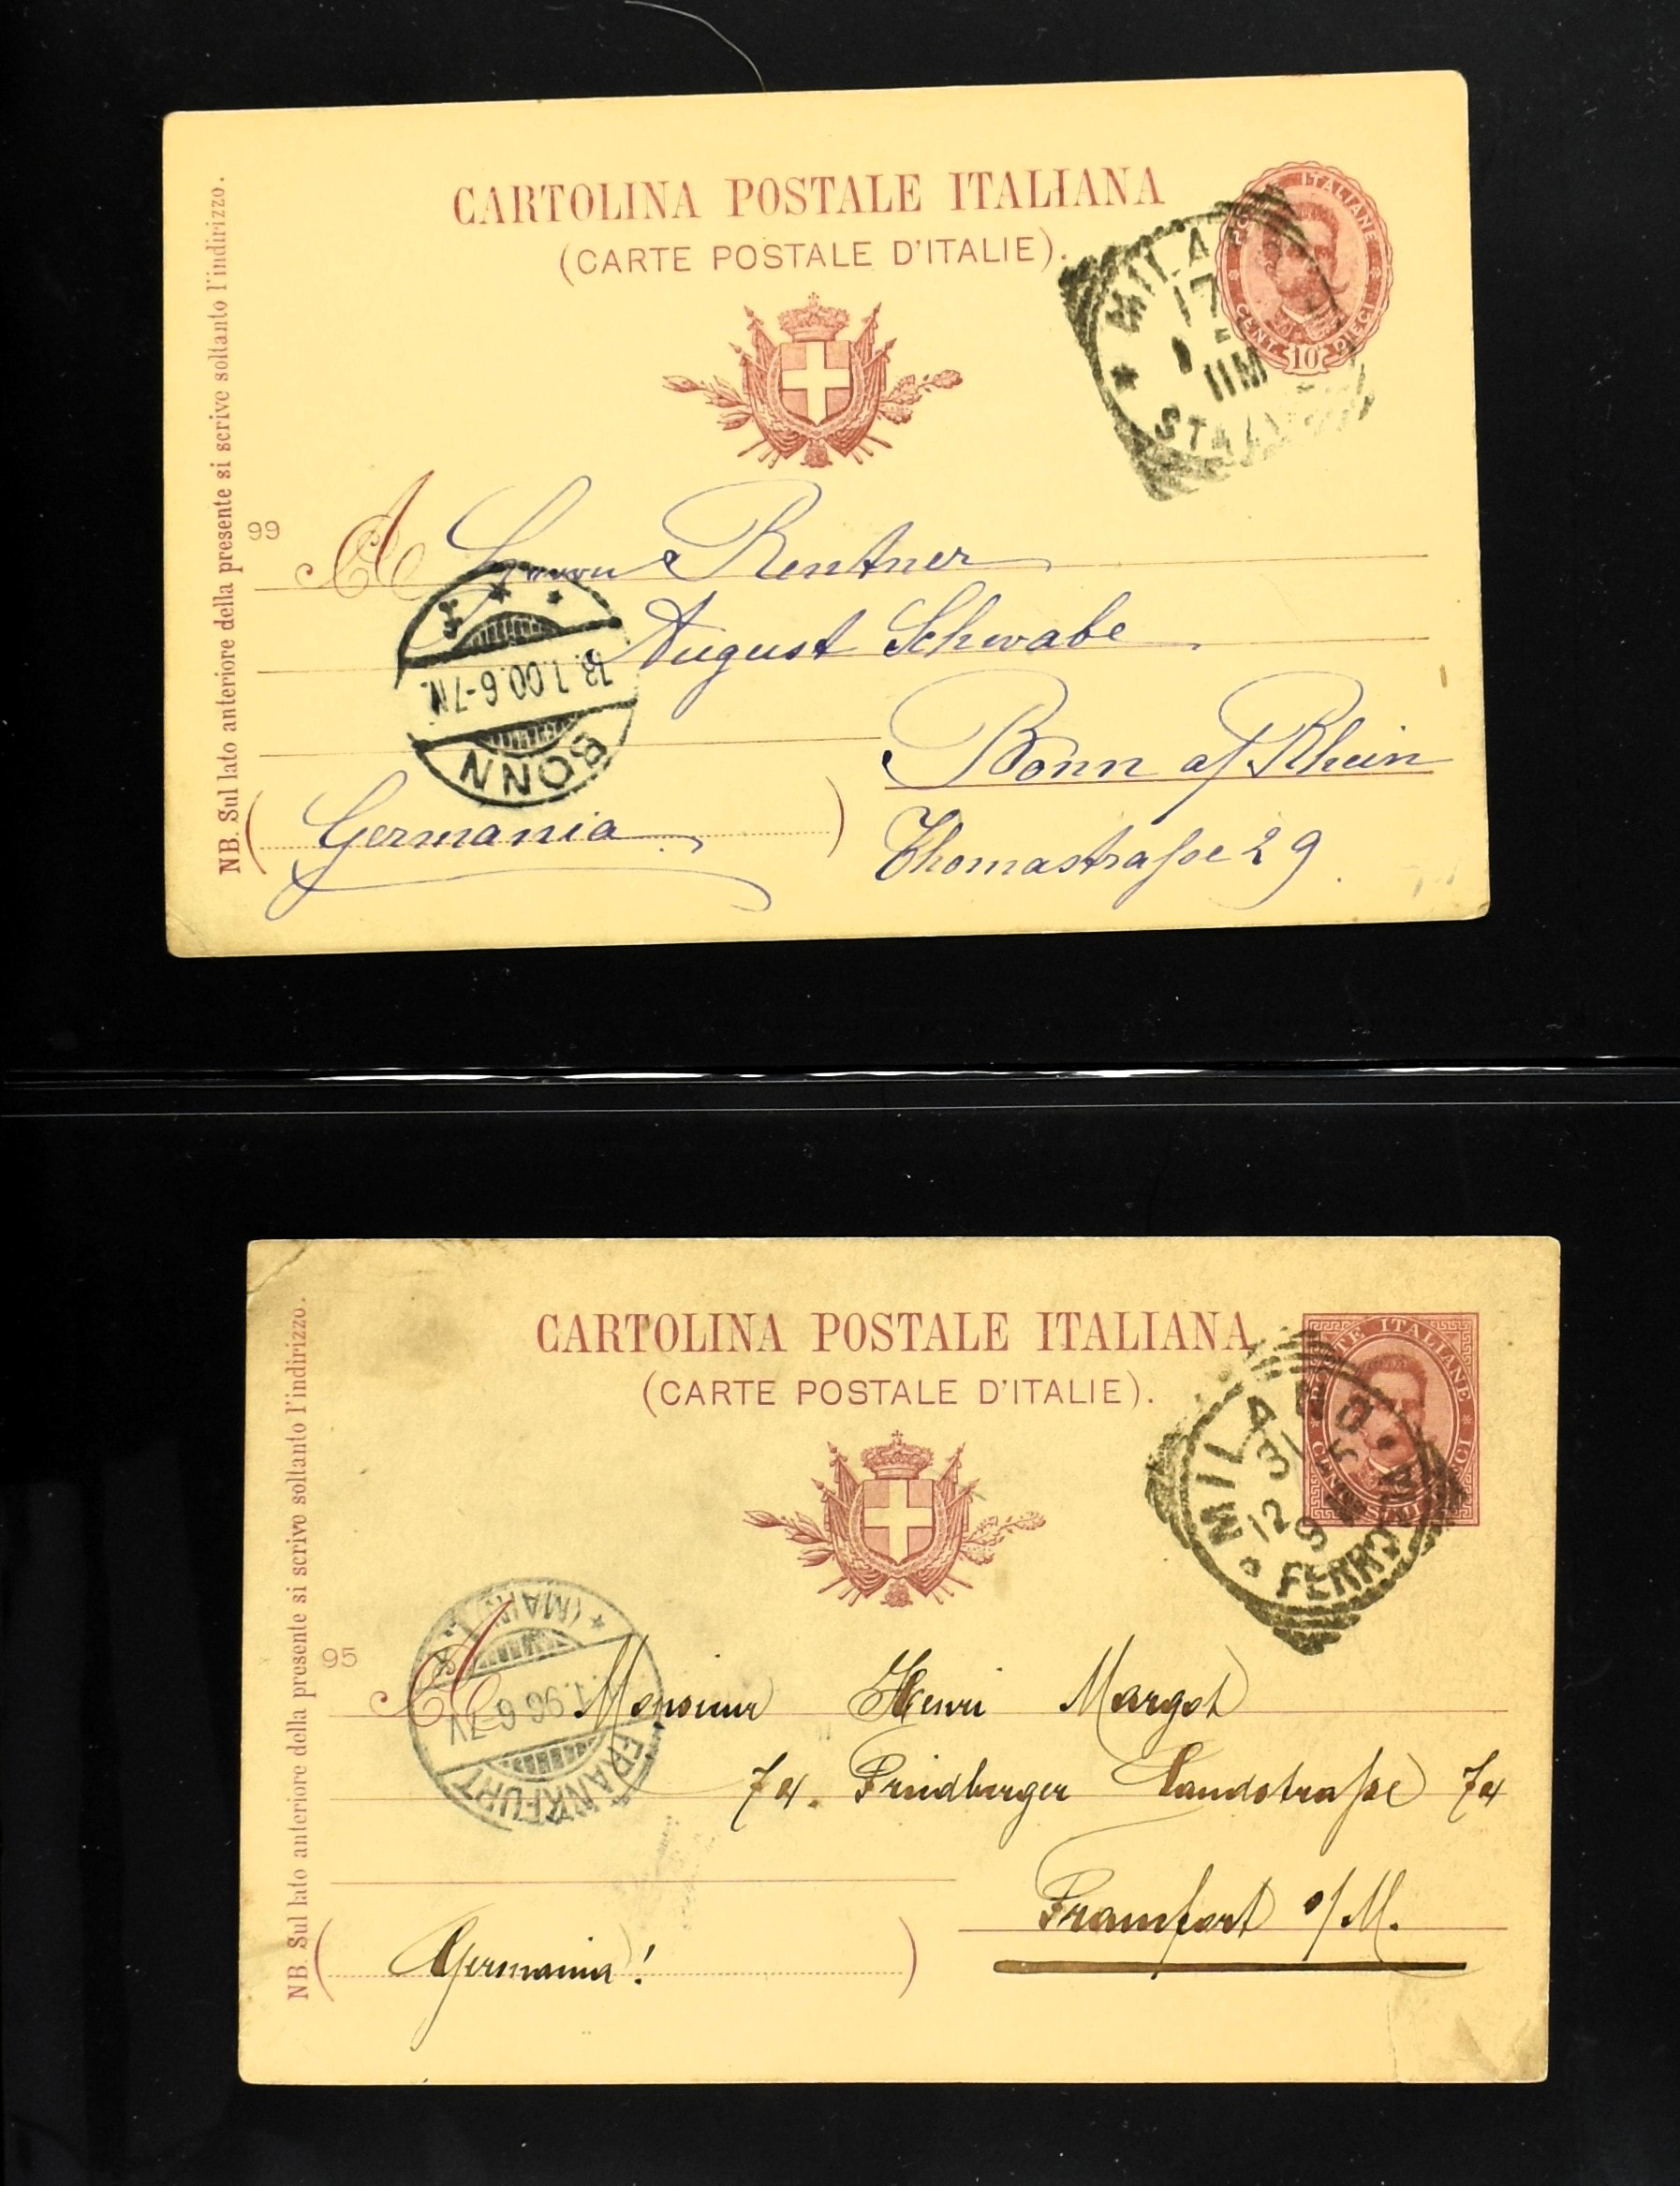 NB. Sul lato anteriore della presente si scrive soltanto l'indirizzo.
CARTOLINA POSTALE ITALIANA
(CARTE POSTALE D'ITALIE).
ITALIANE
CENT. 10 DIECI
MILA
17
1
11M
99
A Herrn Rentner
August Schwabe
18.1.00.6-7N.
BONN
Bonn a/Rhein
(Germania)
Thomastraße 29
NB. Sul lato anteriore della presente si scrive soltanto l'indirizzo.
CARTOLINA POSTALE ITALIANA
(CARTE POSTALE D'ITALIE).
POSTE ITALIANE
MILANO
31
12 9
FERROVIA
95
(MAIN)
1.96.6-7V
FRANKFURT
A Monsieur Henri Margot
74. Friedberger Landstraße 74
Francfort o/M.
(Germania!)